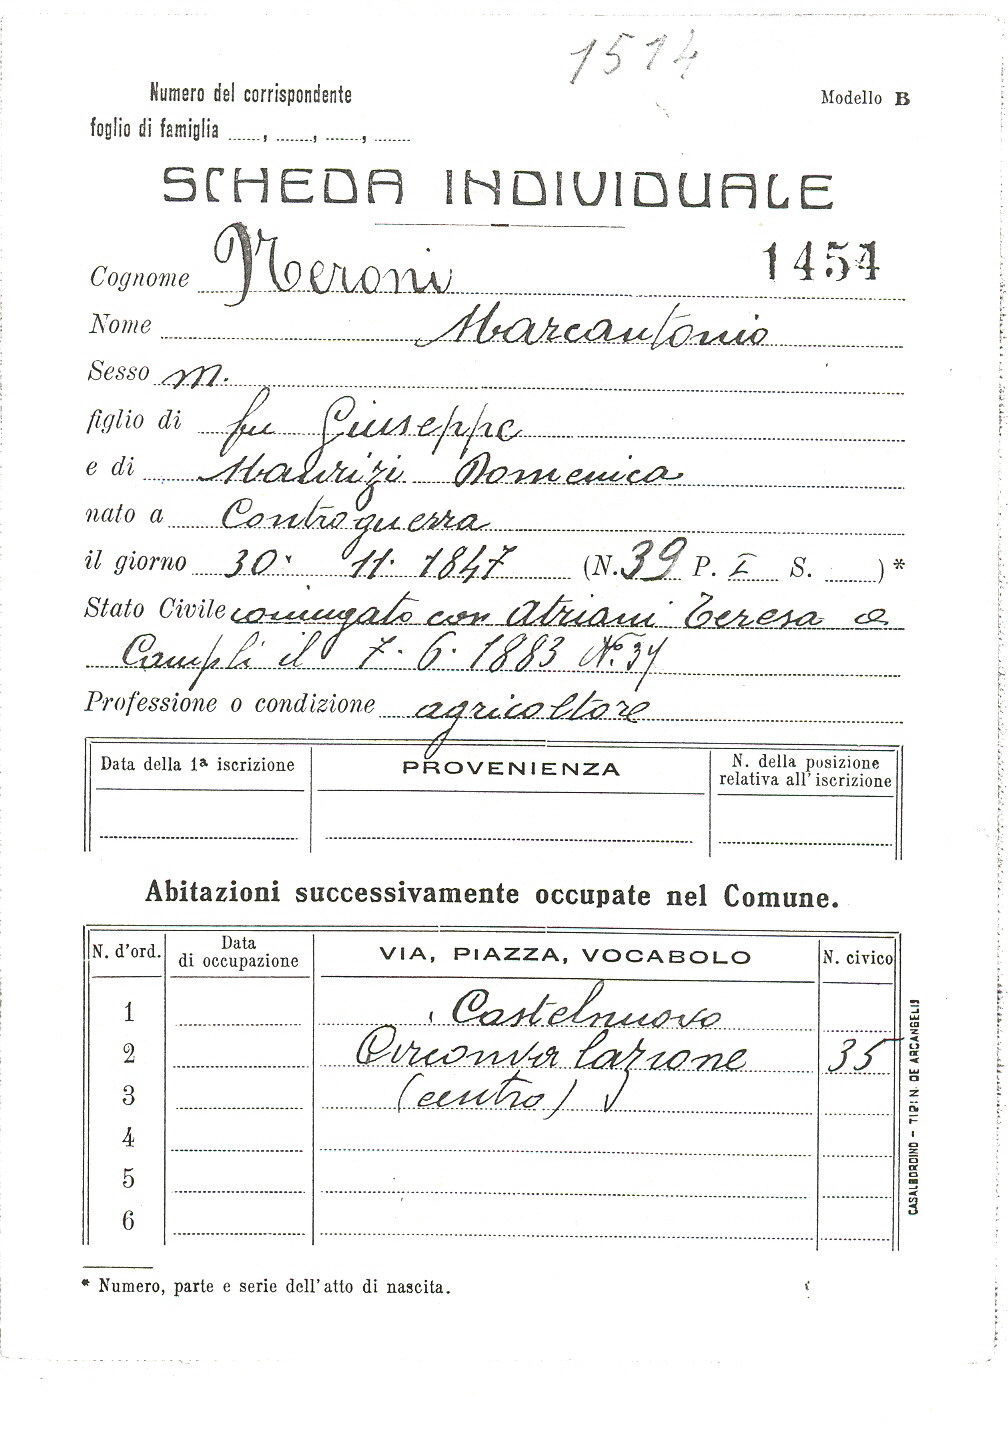 1514
Numero del corrispondente
foglio di famiglia ......, ......, ......, ......
Modello B
SCHEDA INDIVIDUALE
1454
Cognome Neroni
Nome Marcantonio
Sesso m.
figlio di fu Giuseppe
e di Maurizi Domenica
nato a Controguerra
il giorno 30. 11. 1847 (N. 39 P. I S. ......) *
Stato Civile coniugato con Atriani Teresa a
Campli il 7. 6. 1883 N° 34
Professione o condizione agricoltore
Data della 1ª iscrizione PROVENIENZA N. della posizione
relativa all' iscrizione
Abitazioni successivamente occupate nel Comune.
N. d'ord. Data
di occupazione VIA, PIAZZA, VOCABOLO N. civico
1 Castelnuovo
2 Circonvalazione 35
3 (centro)
4
5
6
* Numero, parte e serie dell' atto di nascita.
CASALBORDINO - TIP. N. DE ARCANGELIS